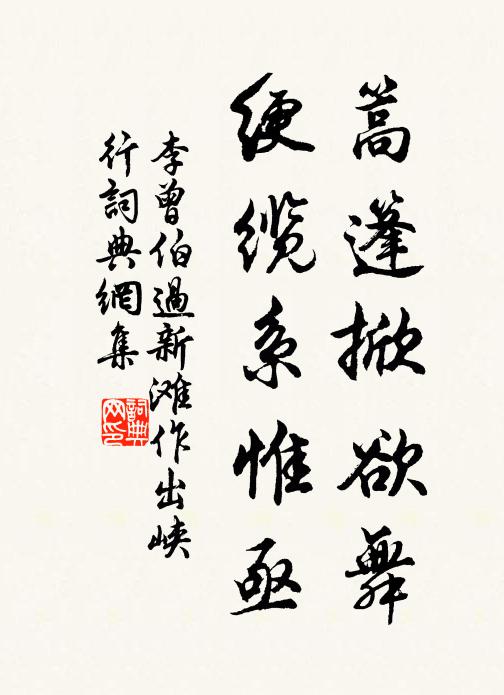 篙篷掀欲舞
绠缆系惟亟
李曾伯過新滩作出峡
行詞典網集
詞典
网印